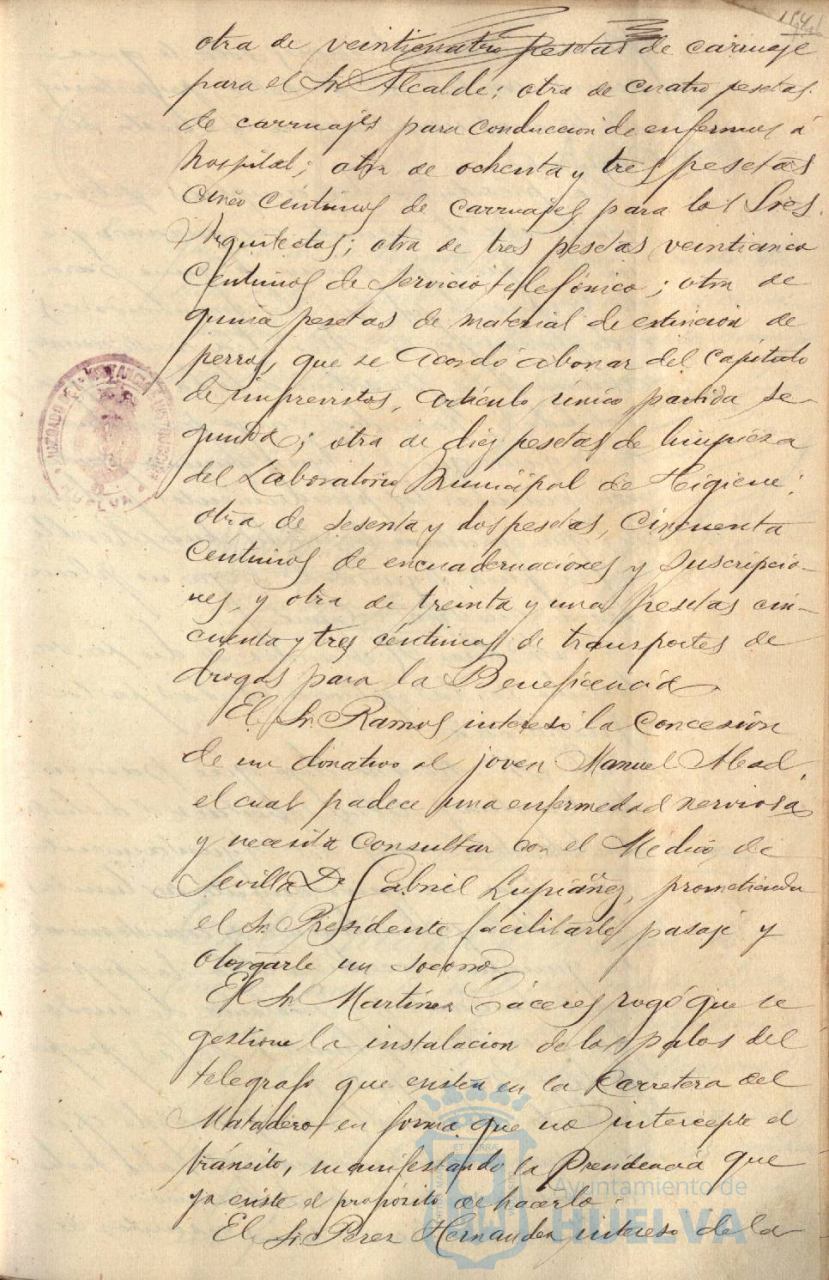 otra de veinticuatro pesetas de carruaje
para el Sr. Alcalde; otra de cuatro pesetas
de carruajes para conduccion de enfermos á
hospital; otra de ochenta y tres pesetas
cinco centimos de carruajes para los Sres.
Arquitectos; otra de tres pesetas veinticinco
centimos de servicio telefónico; otra de
quince pesetas de material de extincion de
perros, que se acordó abonar del capítulo
de imprevistos, artículo único partida se-
gunda; otra de diez pesetas de limpieza
del Laboratorio Municipal de Higiene;
otra de sesenta y dos pesetas, cincuenta
centimos de encuadernaciones y suscripcio-
nes, y otra de treinta y una pesetas cin-
cuenta y tres centimos de transportes de
drogas para la Beneficencia.
El Sr. Ramos interesó la concesión
de un donativo al joven Manuel Abad,
el cual padece una enfermedad nerviosa
y necesita consultar con el Medico de
Sevilla Dn. Gabriel Lupiáñez, prometiendo
el Sr. Presidente facilitarle pasaje y
otorgarle un socorro.
El Sr. Martinez Cáceres rogó que se
gestione la instalacion de los palos del
telegrafo que existen en la Carretera del
Matadero en forma que no intercepte el
tránsito, manifestando la Presidencia que
ya existe el propósito de hacerlo.
El Sr. Perez Hernandez interesó de la
HUELVA
Ayuntamiento de
HUELVA